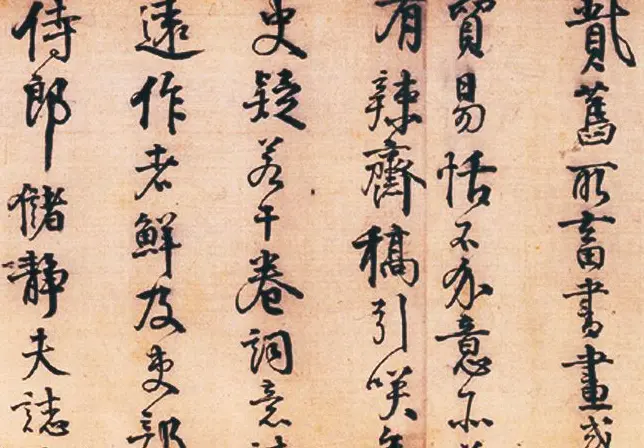 貳舊所畜書畫或
貿易恬不介意所
有辣齋稿引咲
史疑若干卷詞意
遠作者鮮及吏部
侍郎儲靜夫誌